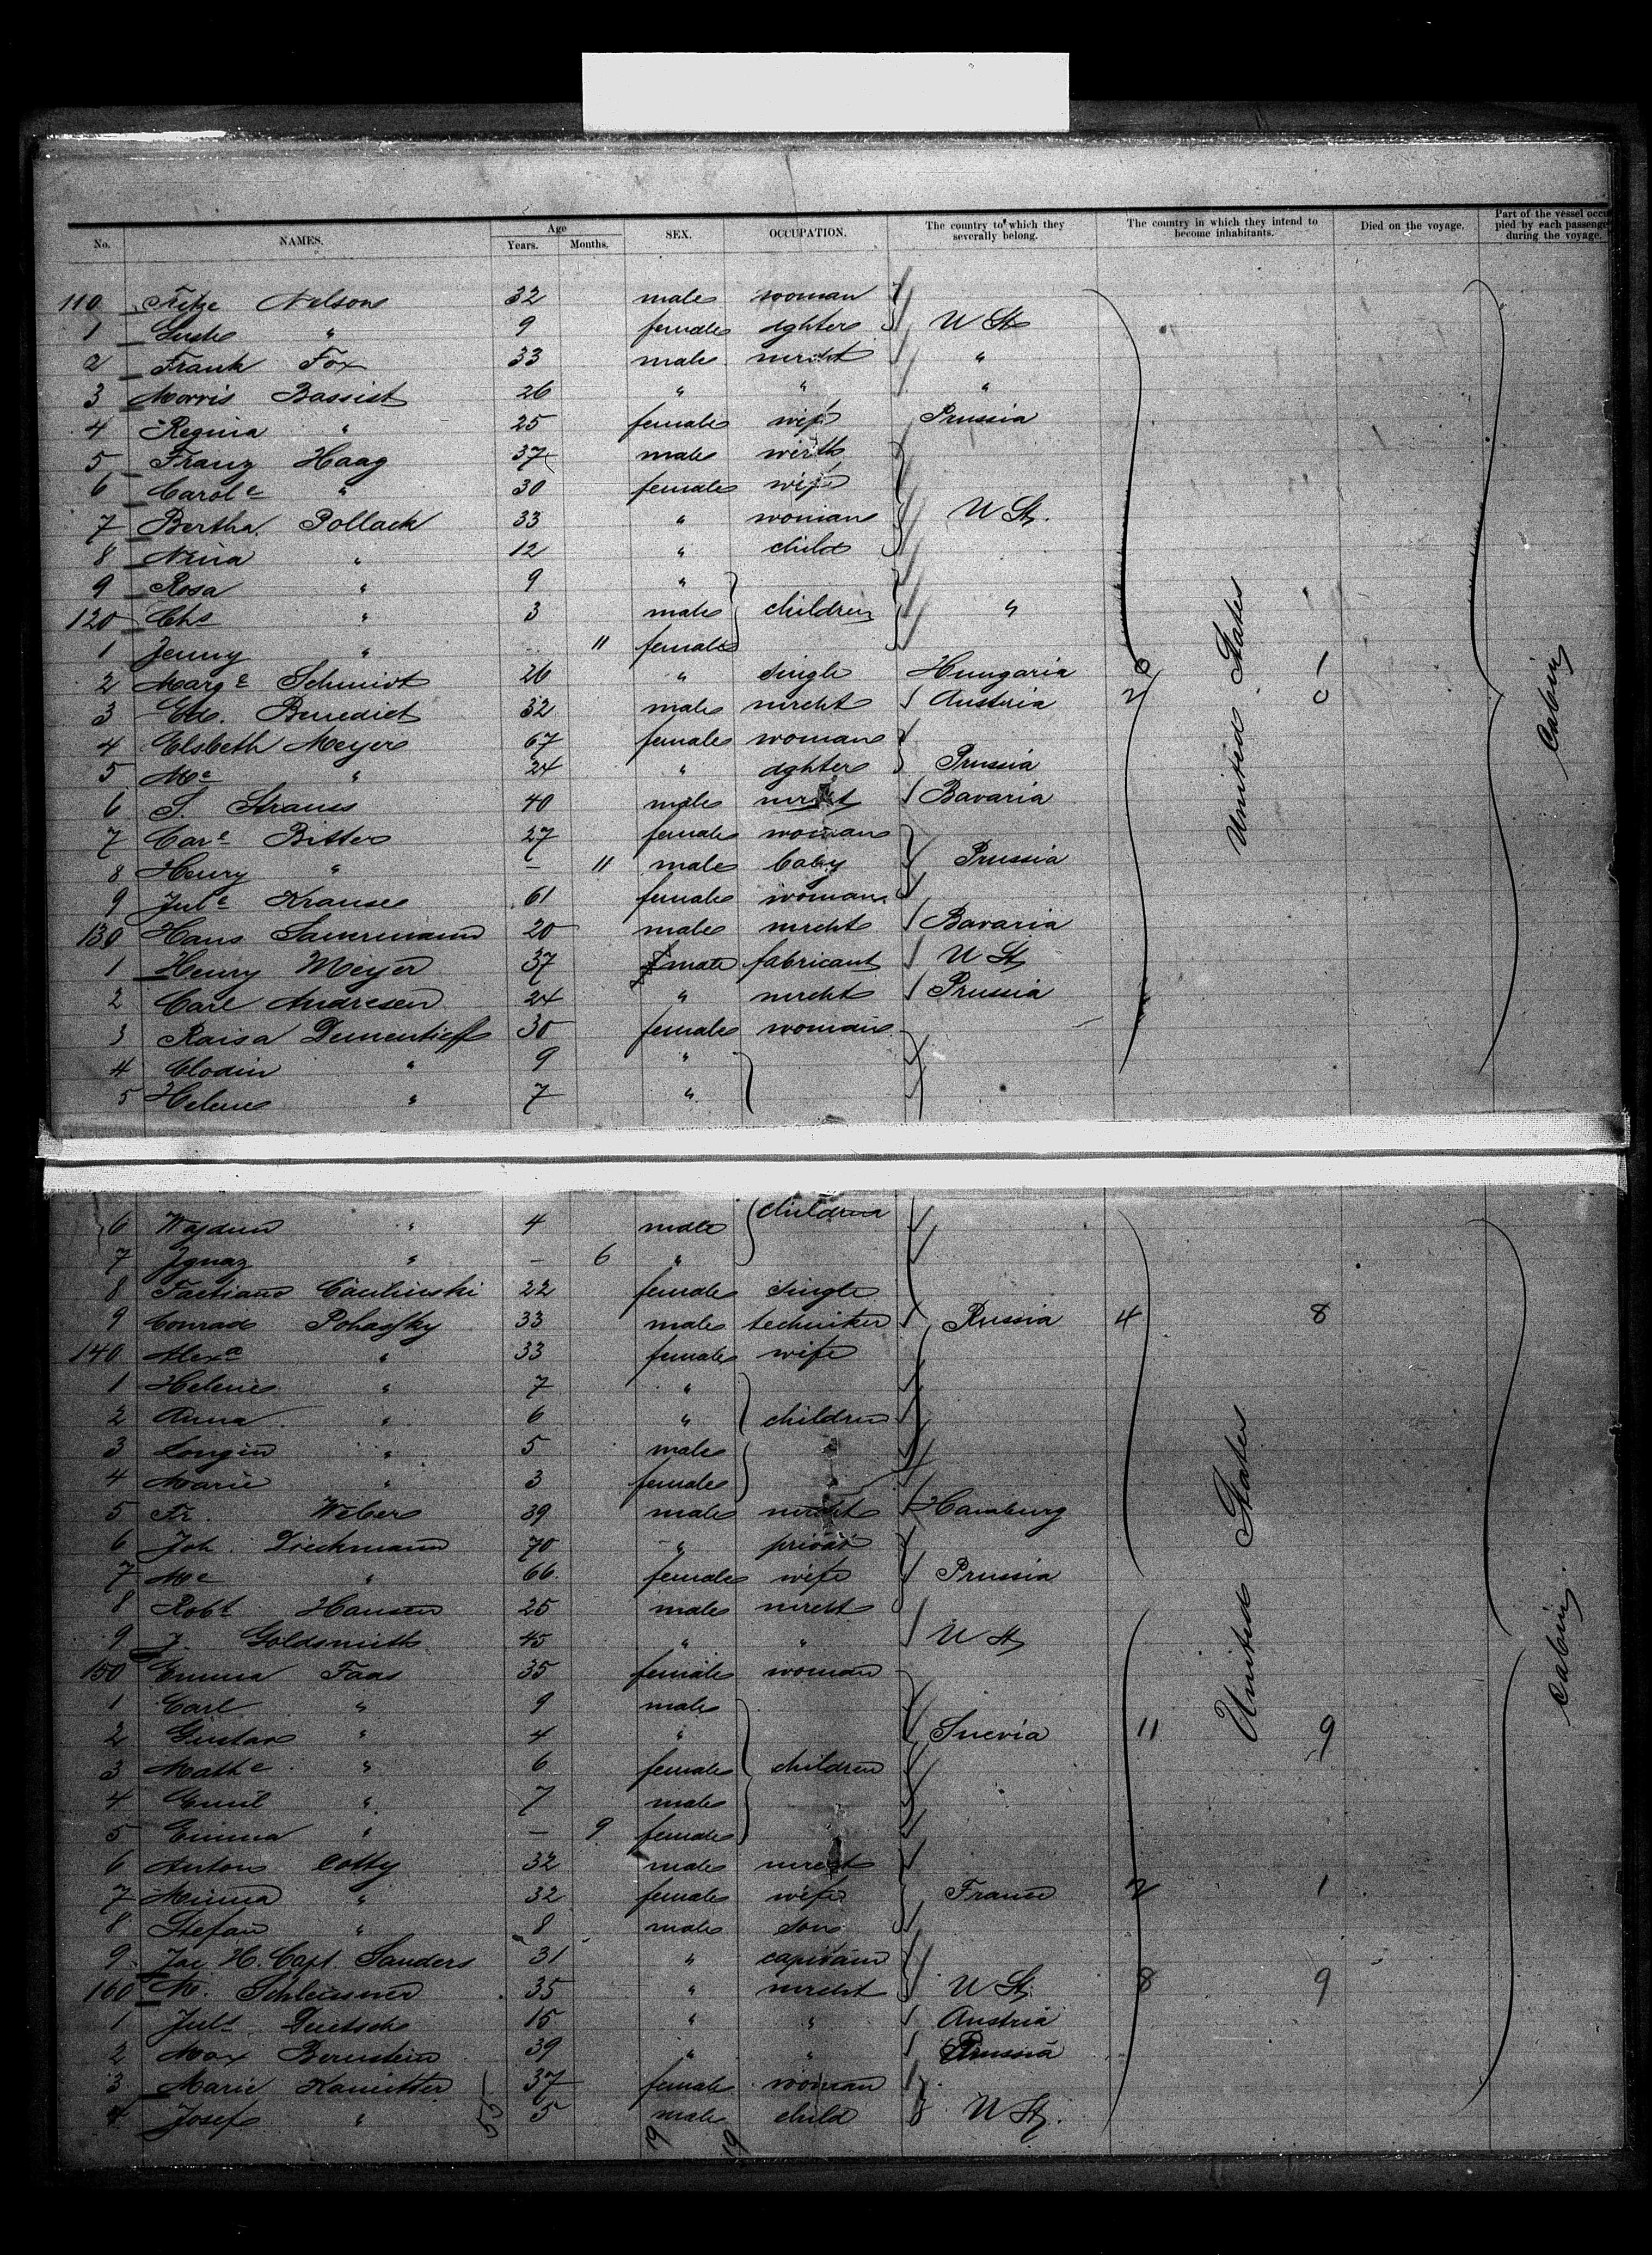 No. NAMES. Age Years. Months. SEX. OCCUPATION. The country to which they severally belong. The country in which they intend to become inhabitants. Died on the voyage. Part of the vessel occupied by each passenger during the voyage.
110 Nelson 32 male woman
1 " 9 female dghter U St
2 Frank Fox 33 male mrcht "
3 Morris Bassist 26 " " "
4 Regina " 25 female wife Prussia
5 Franz Haag 37 male wirth
6 Carole " 30 female wife
7 Bertha Pollack 33 " woman U St.
8 Nina " 12 " child
9 Rosa " 9 "
120 Chs " 3 male children "
1 Jenny " 11 female
2 Marge Schmidt 26 " single Hungaria 6 1
3 Ed. Benedict 32 male mrcht Austria 2 0
4 Elsbeth Meyer 67 female woman
5 Me " 24 " dghter Prussia
6 S. Strauss 40 male mrcht Bavaria
7 Care Bitter 27 female woman
8 Henry " – 11 male baby Prussia
9 Jule Krause 61 female woman
130 Hans Sauermann 20 male mrcht Bavaria
1 Henry Meyer 37 male fabricant U St
2 Carl Andresen 24 " mrcht Prussia
3 Raisa Dementieff 30 female woman
4 Clodin " 9 "
5 Helene " 7 "
United States
Cabin
6 " 4 male children
7 Ignaz " – 6 "
8 22 female single
9 Conrad 33 male techniker Russia 4 8
140 Alexa " 33 female wife
1 Helene " 7 "
2 Anna " 6 " children
3 Longin " 5 male
4 Marie " 3 female
5 Fr. Weber 39 male mrcht Hamburg
6 Joh. Dieckmann 70 " privat
7 Me " 66 female wife Prussia
8 Robt Hansen 25 male mrcht
9 J. Goldsmith 45 " " U St
150 Emma Faas 35 female woman
1 Carl " 9 male
2 Gustav " 4 " Suevia 11 9
3 Mathe " 6 female children
4 Emil " 7 male
5 Emma " – 9 female
6 Anton Cotty 32 male mrcht
7 Minna " 32 female wife France 2 1
8 Stefan " 8 male son
9 Jac H. Capt. Sanders 31 " capitain
160 M. Schleisner 35 " mrcht U St. 8 9
1 Juls Deutsch 15 " " Austria
2 Max Bernstein 39 " " Prussia
3 Marie Kamitter 37 female woman
4 Josef " 5 male child U St.
United States
Cabin
55 19 19